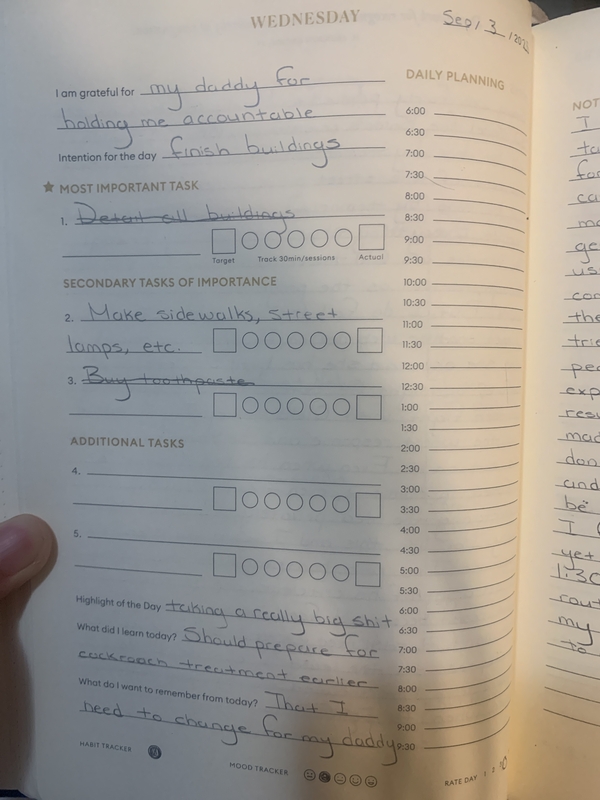 WEDNESDAY
Sep / 3 / 202
I am grateful for my daddy for
holding me accountable
Intention for the day finish buildings
★ MOST IMPORTANT TASK
1. Detail all buildings
Target Track 30min/sessions Actual
SECONDARY TASKS OF IMPORTANCE
2. Make sidewalks, street
lamps, etc.
3. Buy toothpaste
ADDITIONAL TASKS
4.
5.
Highlight of the Day taking a really big shit
What did I learn today? Should prepare for
cockroach treatment earlier
What do I want to remember from today? That I
need to change for my daddy
HABIT TRACKER
MOOD TRACKER
DAILY PLANNING
6:00
6:30
7:00
7:30
8:00
8:30
9:00
9:30
10:00
10:30
11:00
11:30
12:00
12:30
1:00
1:30
2:00
2:30
3:00
3:30
4:00
4:30
5:00
5:30
6:00
6:30
7:00
7:30
8:00
8:30
9:00
9:30
RATE DAY 1 2
NOT
I
ta
for
ca
ge
us
con
the
trie
pe
exp
res
mad
don
and
be
I
yet
1:30
rout
my
to